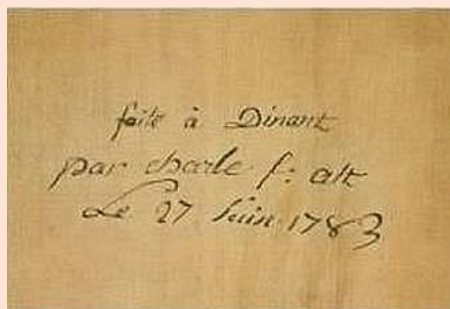 faite à Dinant
par charle f: alt
Le 27 Juin 1783